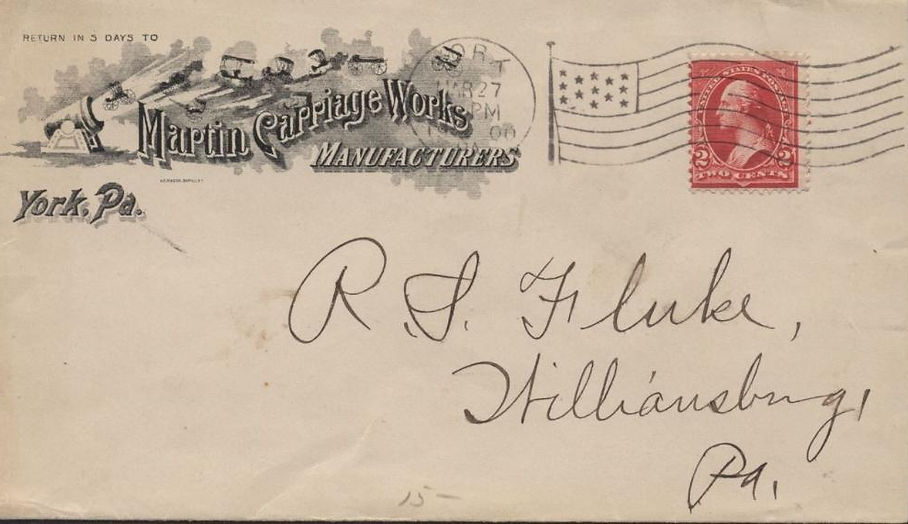 RETURN IN 5 DAYS TO
Martin Carriage Works
MANUFACTURERS
York, Pa.
27
PM
UNITED STATES POSTAGE
2 2
TWO CENTS
R. S. Fluke,
Williamsburg,
Pa.
15-